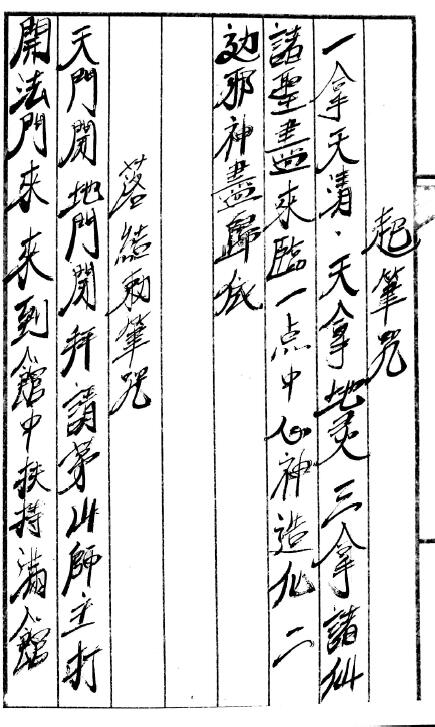 起筆咒
一拿天清、天拿地灵三拿諸仙
諸聖盡來臨一点中心神造化二
边邪神盡歸依
落繪勅筆咒
天門開地門開拜請茅山師主打
開法門來來到入館中扶持滿入館